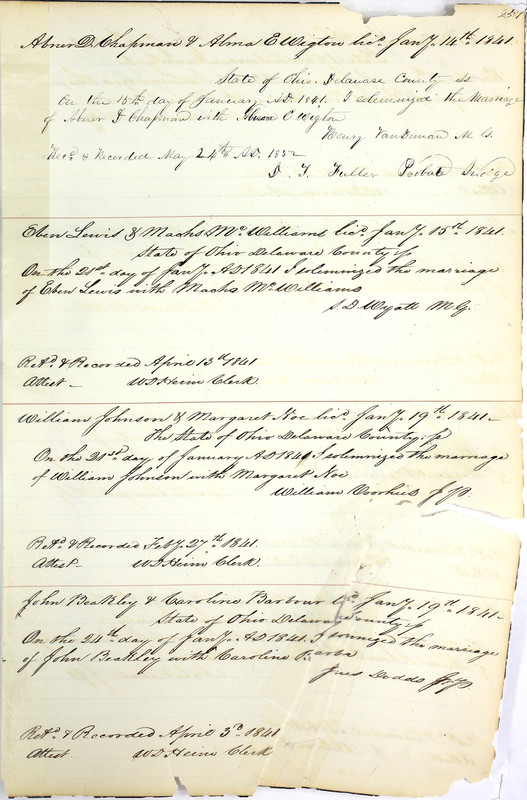 257
Abner D. Chapman & Alma E Wigton lic.d Jan.y 14th 1841.
State of Ohio. Delaware County ss
On the 15th day of January AD. 1841. I solemnized the Marriage
of Abner D Chapman with Alma E Wigton
Henry VanDeman M. G.
Rec.d & Recorded May 24th AD. 1852
D. T. Fuller Probate Judge
Eben Lewis & Machs McWilliams lic.d Jan.y 15th 1841.
State of Ohio Delaware County ss
On the 21st day of Jan.y AD 1841 I solemnized the marriage
of Eben Lewis with Machs McWilliams
S. D. Wyatt M. G.
Ret.d & Recorded April 13th 1841
Attest - W D Heim Clerk.
William Johnson & Margaret Noe lic.d Jan.y 19th 1841-
The State of Ohio Delaware County ss
On the 21st day of January AD 1841 I solemnized the marriage
of William Johnson with Margaret Noe
William Voorhies J.P.
Ret.d & Recorded Feb.y 27th 1841.
Attest W D Heim Clerk.
John Beakley & Caroline Barbour lic.d Jan.y 19th 1841-
State of Ohio Delaware County ss
On the 24th day of Jan.y AD 1841. I solemnized the marriage
of John Beakley with Caroline
Dodds J.P.
Ret.d & Recorded April 3d 1841
Attest W D Heim Clerk